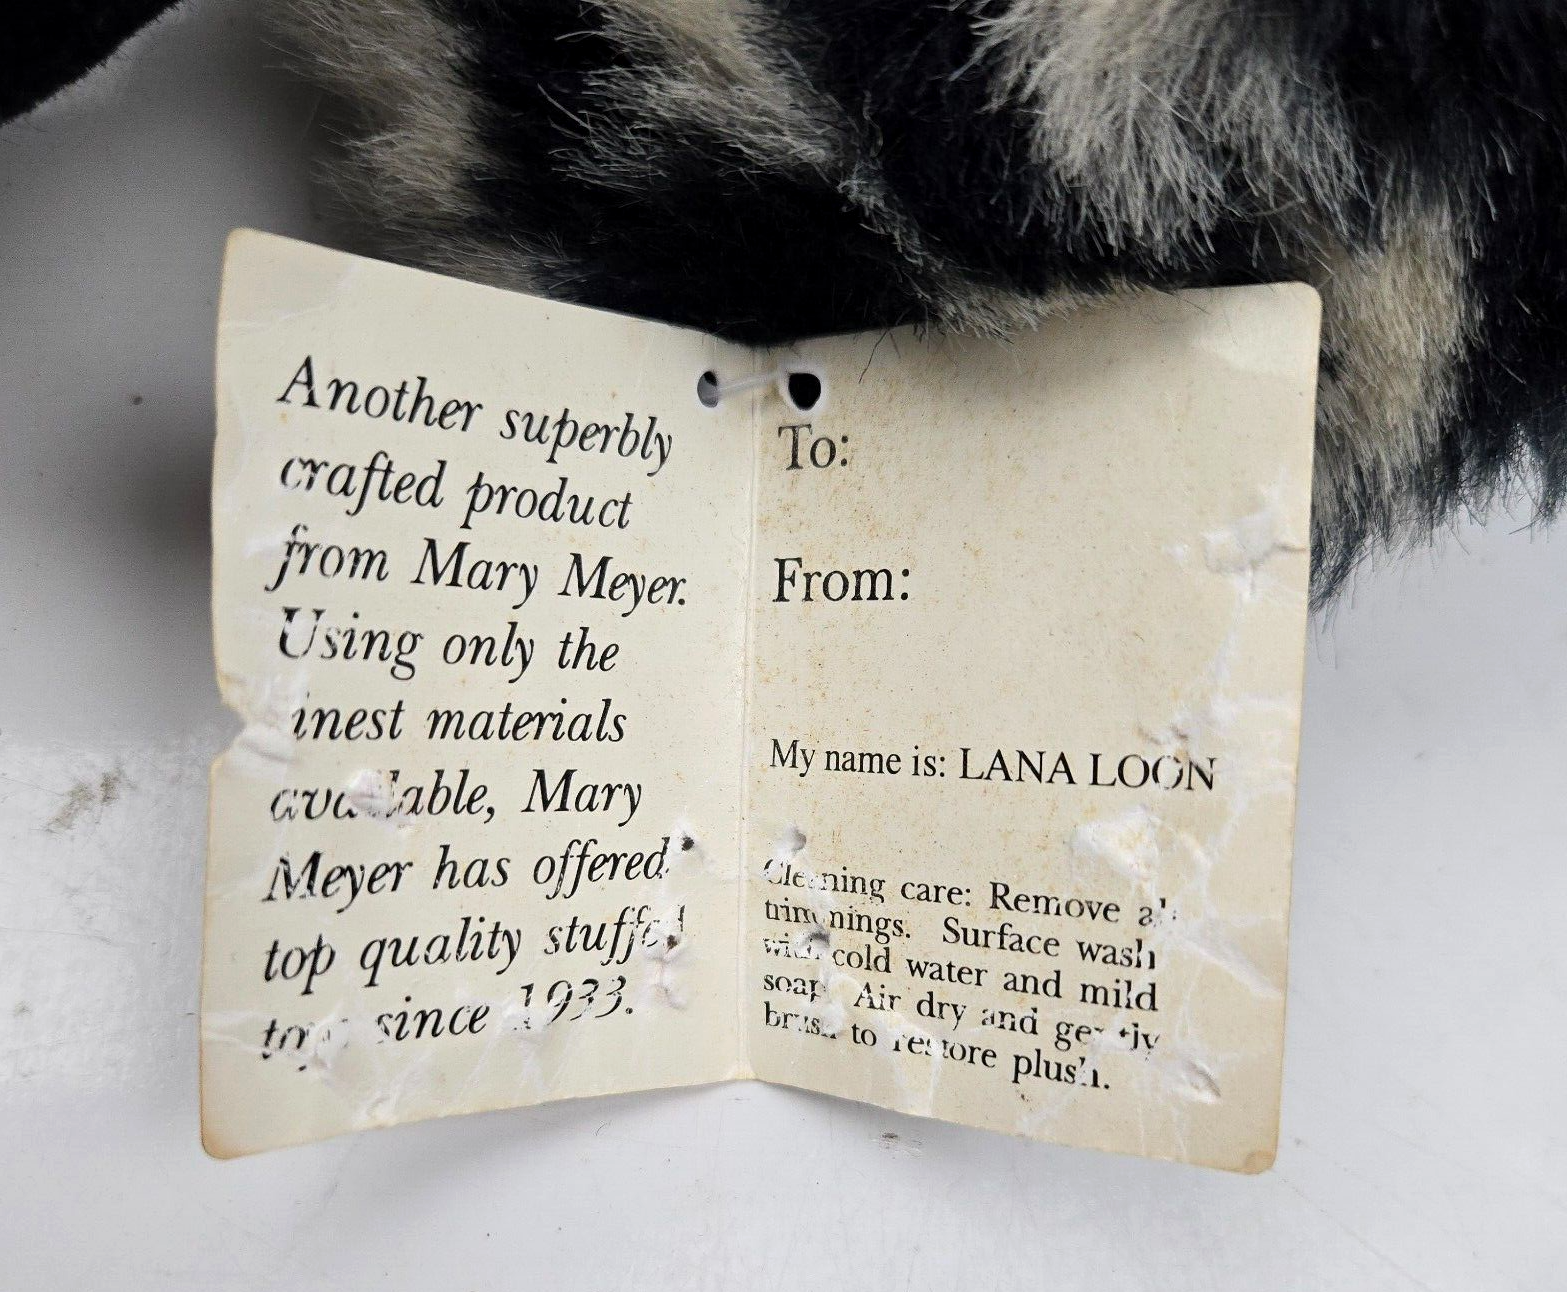 Another superbly
crafted product
from Mary Meyer.
Using only the
inest materials
available, Mary
Meyer has offered
top quality stuffed
toys since 1933.
To:
From:
My name is: LANA LOON
Cleaning care: Remove all
trimmings. Surface wash
with cold water and mild
soap. Air dry and gently
brush to restore plush.